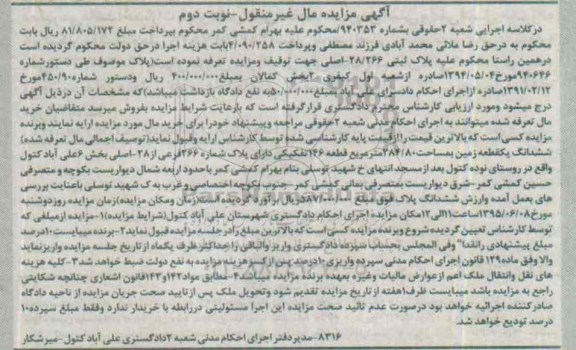 آگهی مزایده مال غیرمنقول-نوبت دوم
درکلاسه اجرایی شعبه ۲حقوقی بشماره ۹۴۰۳۵۳/محکوم علیه بهرام کمشی کمر محکوم بپرداخت مبلغ ۸۱/۸۰۵/۱۷۲ ریال بابت
محکوم به درحق رضا ملائی محمد آبادی فرزند مصطفی وپرداخت ۴/۰۹۰/۲۵۸بابت هزینه اجرا درحق دولت محکوم گردیده است
درهمین راستا محکوم علیه پلاک ثبتی ۲۸/۲۶۶-اصلی جهت توقیف ومزایده تعرفه نموده است(پلاک موصوف طی دستورشماره
۹۴۰۶۴۶مورخ۱۳۹۴/۰۵/۰۴صادره ازشعبه اول کیفری ۲بخش کمالان بمبلغ۴۰۰/۰۰۰/۰۰۰ریال ودستور شماره۴۵/۹۰مورخ
۱۳۹۱/۰۲/۱۲صادره ازاجرای احکام دادسرای علی آباد بمبلغ۵۰/۰۰۰/۰۰۰به نفع دادگاه بازداشت میباشد)که مشخصات آن درذیل آگهی
درج میشود ومورد ارزیابی کارشناس محترم دادگستری قرارگرفته است که بارعایت شرایط مزایده بفروش میرسد متقاضیان خرید
مال تعرفه شده میتوانند به اجرای احکام مدنی شعبه ۲حقوقی مراجعه وپیشنهاد خودرا برای خرید مال مورد مزایده ارایه نمایند وبرنده
مزایده کسی است که بالاترین قیمت رااز قیمت پایه کارشناسی شده توسط کارشناس ارایه وقبول نماید(توصیف اجمالی مال تعرفه شده)
ششدانگ یکقطعه زمین بمساحت۳۸۴/۸۰مترمربع قطعه ۱۴۶تفکیکی دارای پلاک شماره ۲۶۶فرعی از۲۸-اصلی بخش ۶علی آباد کتول
واقع در روستای نوده کتول بعد از مسجد انتهای خ شهید توسلی بنام بهرام کمشی کمر باحدود اربعه شمال دیواریست بکوچه و متصرفی
حسین کمشی کمر-شرق دیواریست بمتصرفی بمانی کمشی کمر-جنوب بکوچه اختصاصی وغرب به ک شهید توسلی باعنایت بررسی
های بعمل آمده وارزش ششدانگ پلاک فوق بمبلغ ۵۸۷/۰۰۰/۰۰۰ریال برآورد گردیده است(زمان ومکان مزایده)زمان مزایده روزدوشنبه
مورخ۱۳۹۵/۰۶/۰۸ساعت۱۱الی۱۲مکان مزایده اجرای احکام دادگستری شهرستان علی آباد کتول(شرایط مزایده)۱-مزایده ازمبلغی که
توسط کارشناس تعیین گردیده شروع وبرنده مزایده کسی است که بالاترین مبلغ رادر جلسه مزایده قبول نماید۲-برنده میبایست۱۰درصد
مبلغ پیشنهادی رانقدا" وفی المجلس بحساب سپرده دادگستری واریز والباقی را حداکثر ظرف یکماه از تاریخ جلسه مزایده واریزنماید
والا وفق ماده۱۲۹قانون اجرای احکام مدنی سپرده واریزی۱۰درصد پس ازکسرهزینه مزایده به نفع دولت ضبط خواهد شد۳-کلیه هزینه
های نقل وانتقال ملک اعم ازعوارض مالیات وغیره بعهده برنده مزایده میباشد۴-مطابق مواد۱۴۲و۱۴۳قانون اشعاری چنانچه شکایتی
راجع به مزایده باشد میبایست ظرف۱هفته از تاریخ مزایده تقدیم شود وتحویل ملک پس ازتایید صحت جریان مزایده از ناحیه دادگاه
صادرکننده اجرائیه خواهد بود درصورت عدم تائید صحت مزایده این اجرا مسئولیتی دررابطه با خریدار ندارد وفقط مبلغ سپرده۱۰
درصد تودیع خواهد شد.
۸۳۱۶-مدیردفتر اجرای احکام مدنی شعبه ۲دادگستری علی آباد کتول-میرشکار